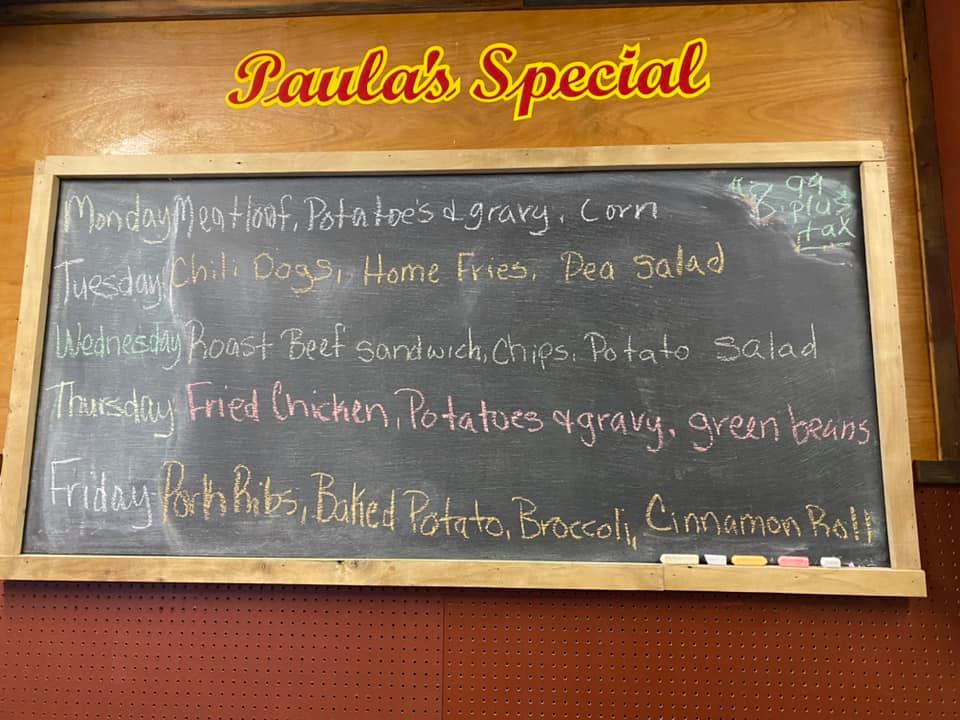 Paula's Special
Monday Meatloaf, Potatoe's & gravy, Corn
99
plus
tax
Tuesday Chili Dogs, Home Fries, Pea Salad
Wednesday Roast Beef Sandwich, Chips, Potato Salad
Thursday Fried Chicken, Potatoes & gravy, green beans
Friday Pork Ribs, Baked Potato, Broccoli, Cinnamon Roll